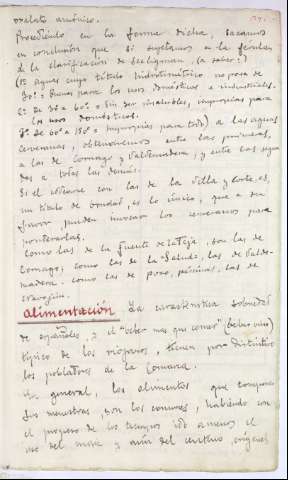 oxalato amónico.
Procediendo en la forma dicha, sacamos
en conclusión que si aceptamos la fórmula
de la clasificación de Seeligman, (a saber:)
(1º aguas cuyo título hidrotimétrico no pasa de
30º: Buenas para los usos domésticos e industriales.
2º De 30 a 60º: Sin ser insalubres, impropias para
los usos domésticos.
3º De 60º a 150º: Impropias para todo) a las aguas
cerveranas, obtendremos entre las primeras,
a las de Cornago y Valdemadera, y entre las segun
das a todas las demás.
Si el codearse con las de la Villa y Corte, es
un título de bondad, es lo único, que a su
favor, pueden invocar los cerveranos para
ponderarlas.
Como las de la fuente de la Teja, son las de
Cornago; como las de la Salud, las de Valde-
madera. Como las de pozo, pésimas, las de
alimentación La característica sobriedad
de españoles, y el "beber mas que comer" (beber vino)
típico de los riojanos, tienen por distintivo
los pobladores de la Comarca.
En general, los alimentos que componen
sus son los comunes, habiendo con
el progreso de los tiempos ido a menos el
uso del maíz y aún del centeno,